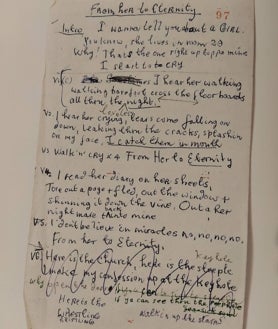 From Her to Eternity
97
Intro I wanna tell you about a GIRL
You know, she lives in room 29
Why! That's the one right up top a mine
I start to to CRY
I hear her walking
walking barefoot cross the floor boards
all thru the night,
lonesome
vs. I hear her crying, tears come falling on
down, leaking thru the cracks, splashin
on my face, I catch them in mouth
vs Walk 'n' cry x 4 From Her to Eternity
vs. I read her diary on her sheets,
Tore out a page & fled, out the window &
shinning it down the vine. Outa her
nightmare into mine
vs. I don't believe in miracles no, no, no, no.
From her to Eternity.
Keyhole
Here is the Church, here is the steeple
I make my confession, up at the keyhole
open
Here is the if ya can see thru the
WRESTLING walkin up the stairs